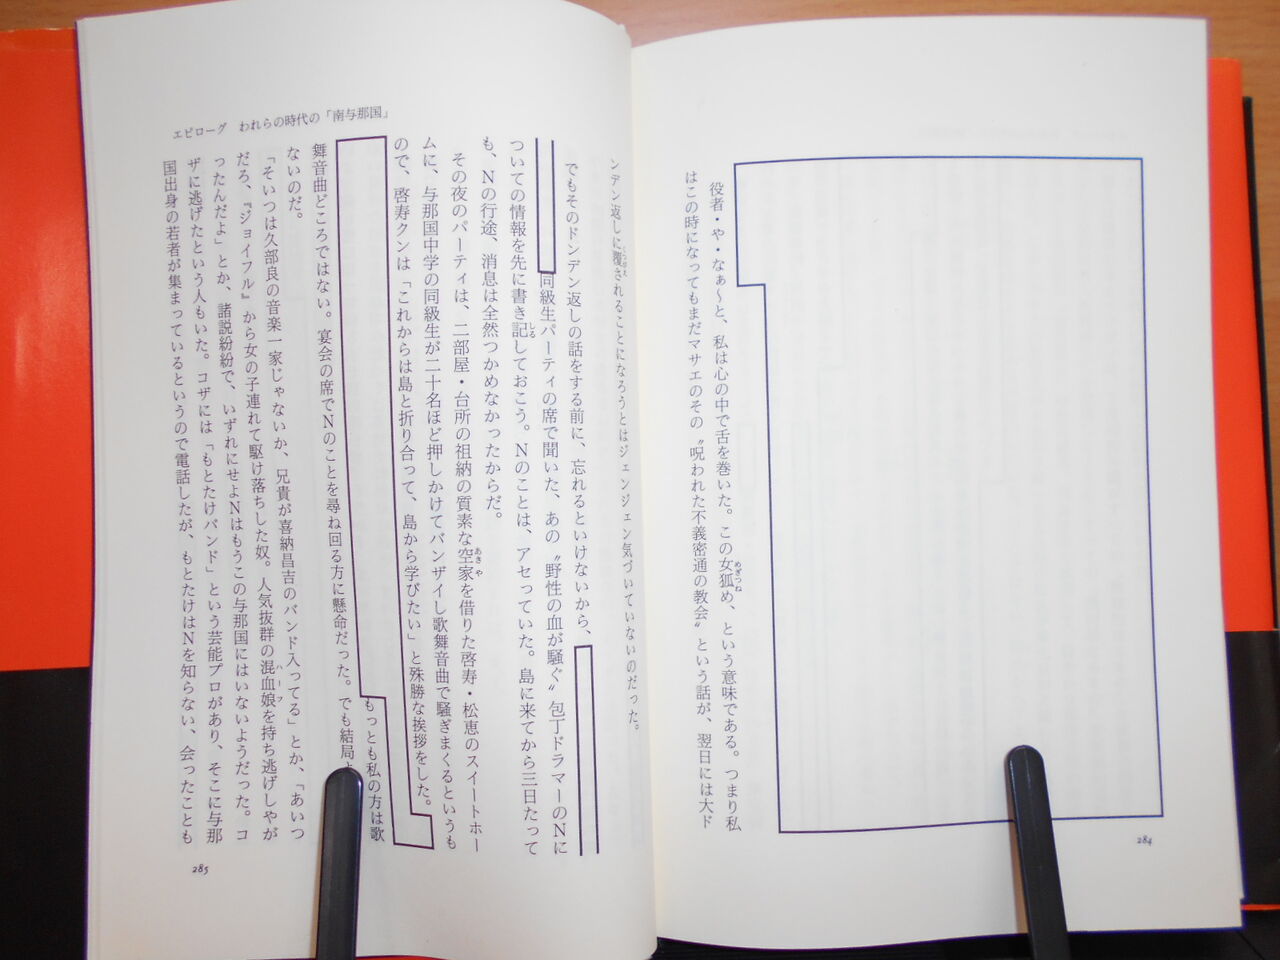 役者・や・なぁ〜と、私は心の中で舌を巻いた。この女狐め、という意味である。つまり私
めぎつね
はこの時になってもまだマサエのその〝呪われた不義密通の教会〟という話が、翌日には大ド
284
エピローグ　われらの時代の「南与那国」
ンデン返しに覆されることになろうとはジェンジェン気づいていないのだった。
くつがえ
でもそのドンデン返しの話をする前に、忘れるといけないから、
同級生パーティの席で聞いた、あの〝野性の血が騒ぐ〟包丁ドラマーのNに
ついての情報を先に書き記しておこう。Nのことは、アセっていた。島に来てから三日たって
しる
も、Nの行途、消息は全然つかめなかったからだ。
その夜のパーティは、二部屋・台所の祖納の質素な空家を借りた啓寿・松恵のスイートホー
あきや
ムに、与那国中学の同級生が二十名ほど押しかけてバンザイし歌舞音曲で騒ぎまくるというも
ので、啓寿クンは「これからは島と折り合って、島から学びたい」と殊勝な挨拶をした。
もっとも私の方は歌
舞音曲どころではない。宴会の席でNのことを尋ね回る方に懸命だった。でも結局
ないのだ。
「そいつは久部良の音楽一家じゃないか、兄貴が喜納昌吉のバンド入ってる」とか、「あいつ
だろ、『ジョイフル』から女の子連れて駆け落ちした奴。人気抜群の混血娘を持ち逃げしやが
ハーフ
ったんだよ」とか、諸説紛紛で、いずれにせよNはもうこの与那国にはいないようだった。コ
ザに逃げたという人もいた。コザには「もとたけバンド」という芸能プロがあり、そこに与那
国出身の若者が集まっているというので電話したが、もとたけはNを知らない、会ったことも
285